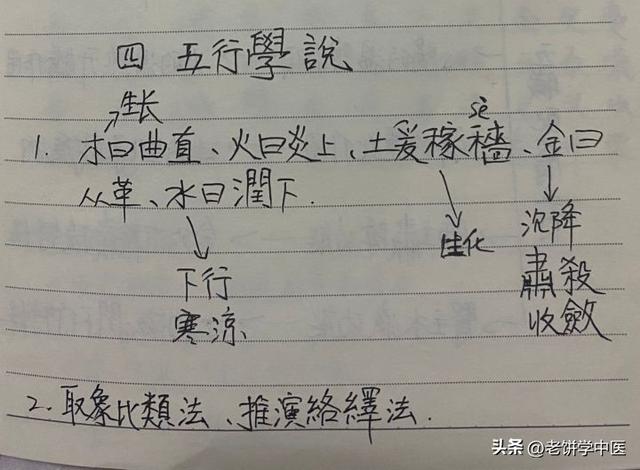 四 五行學說
生长
1. 木曰曲直、火曰炎上、土爰稼穡、金曰
sè
从革、水曰潤下.
下行
寒涼
生化
沉降
肅殺
收斂
2. 取象比類法、推演絡繹法.
头条 @老饼学中医